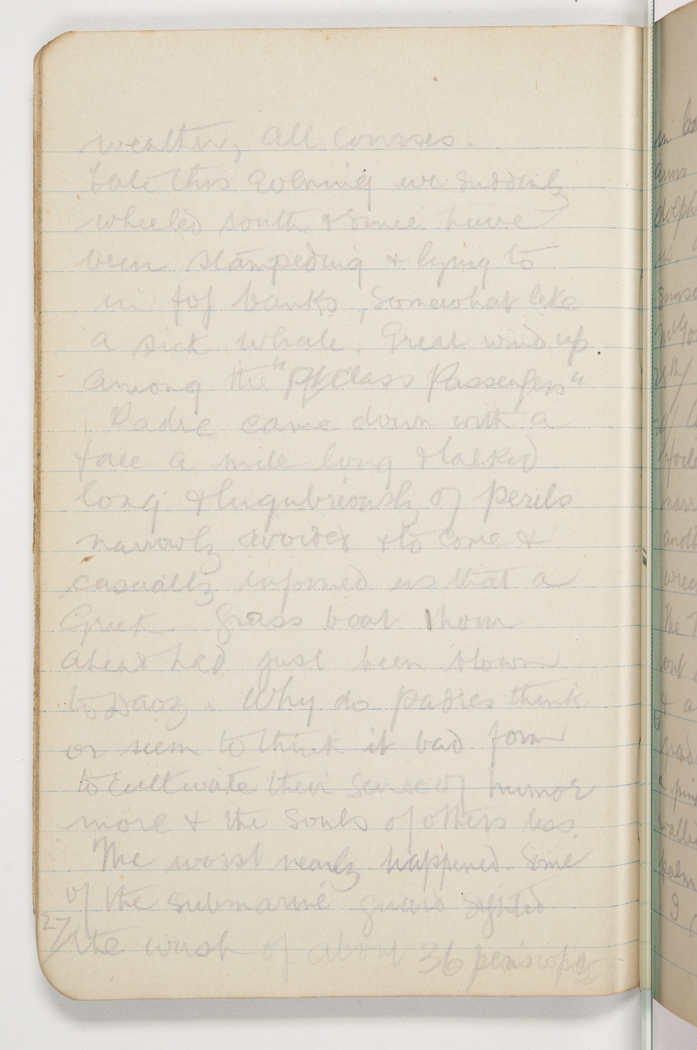 weather, all courses.
Late this evening we suddenly
wheeled south & since have
been stampeding & lying to
in fog banks, somewhat like
a sick whale. Great wind up
among the " class Passengers"
Padre came down with a
face a mile long & talked
long & lugubriously of perils
narrowly avoided & to come &
casually informed us that a
Greek grass boat 1 hour
ahead had just been blown
to Davy. Why do padres think
or seem to think it bad form
to cultivate their sense of humor
more & the souls of others less.
The worst nearly happened. Some
of the submarine guard sighted
27/ the wash of about 36 periscopes